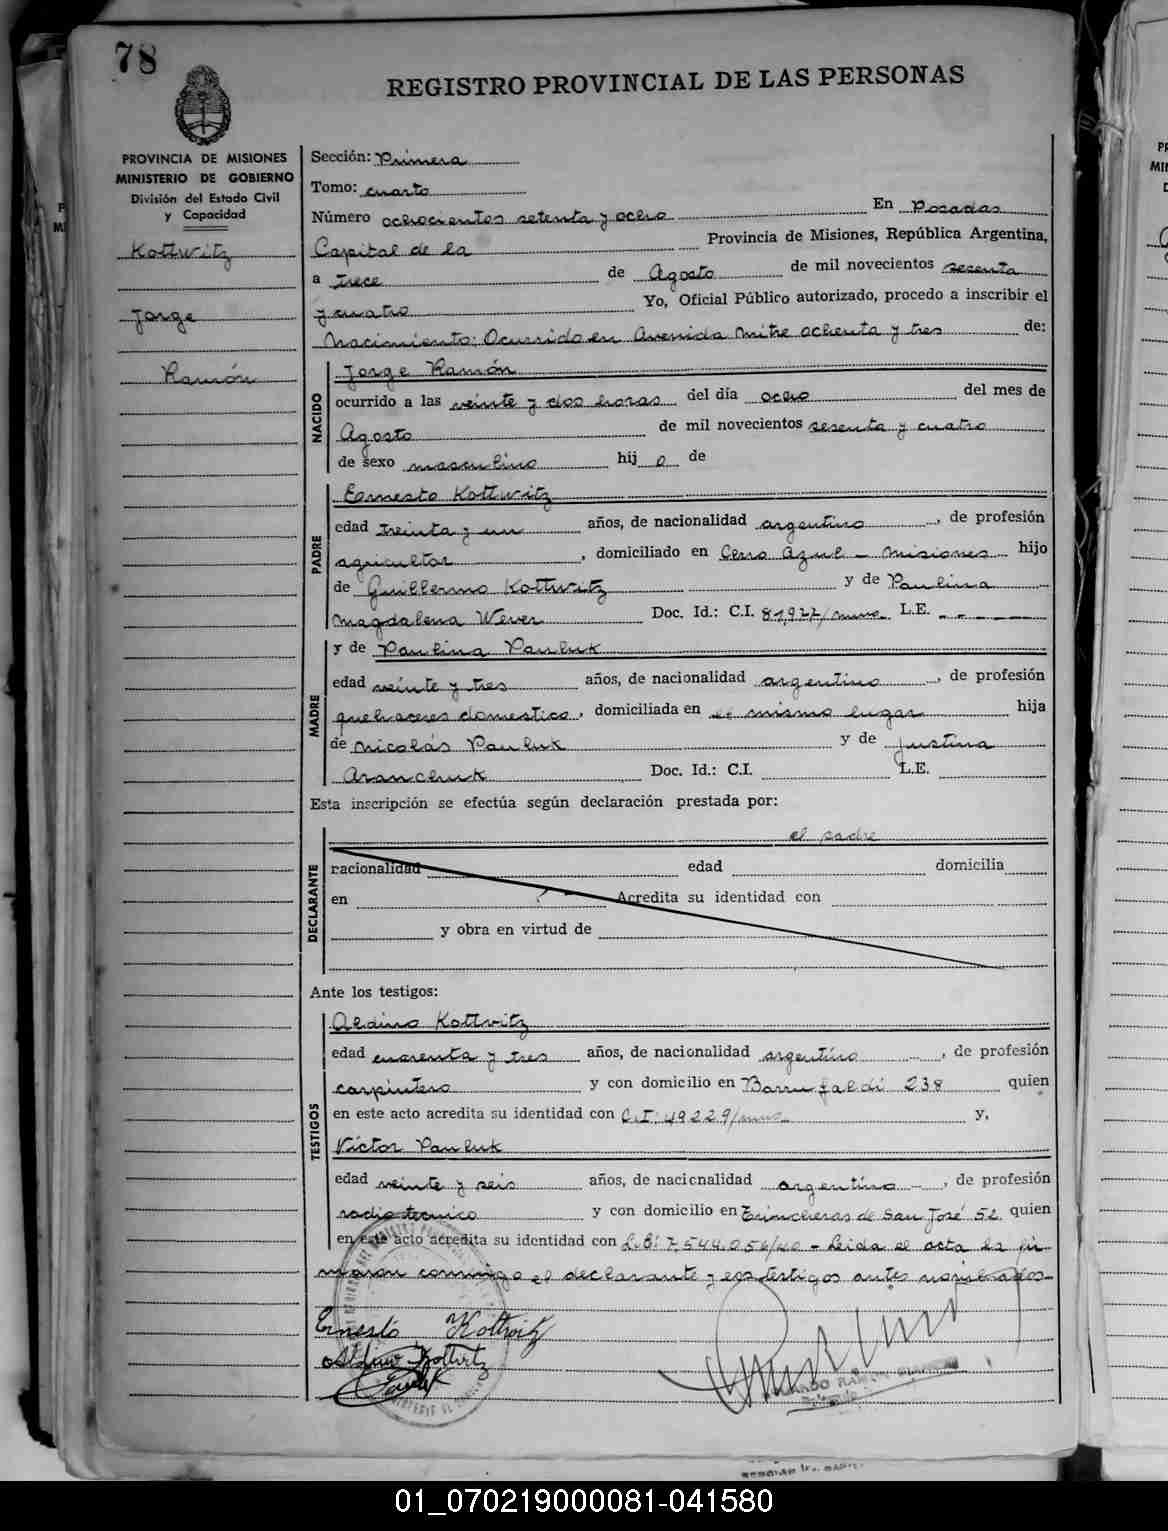 78
REGISTRO PROVINCIAL DE LAS PERSONAS
PROVINCIA DE MISIONES
MINISTERIO DE GOBIERNO
División del Estado Civil
y Capacidad
Kottwitz
Jorge
Ramón
Sección: Primera
Tomo: cuarto
Número ochocientos setenta y ocho En Posadas
Capital de la Provincia de Misiones, República Argentina,
a trece de Agosto de mil novecientos sesenta
y cuatro Yo, Oficial Público autorizado, procedo a inscribir el
Nacimiento: Ocurrido en Avenida Mitre ochenta y tres de:
NACIDO
Jorge Ramón
ocurrido a las veinte y dos horas del día ocho del mes de
Agosto de mil novecientos sesenta y cuatro
de sexo masculino hij o de
PADRE
Ernesto Kottwitz
edad treinta y un años, de nacionalidad argentino, de profesión
agricultor, domiciliado en Cerro Azul - Misiones hijo
de Guillermo Kottwitz y de Paulina
Magdalena Wever Doc. Id.: C.I. 81,977/mnes. L.E. - - - - -
MADRE
y de Paulina Pauluk
edad veinte y tres años, de nacionalidad argentino, de profesión
quehaceres domestico, domiciliada en el mismo lugar hija
de Nicolás Pauluk y de Justina
Aranchuk Doc. Id.: C.I. L.E.
Esta inscripción se efectúa según declaración prestada por:
DECLARANTE
el padre
nacionalidad edad domicilia
en Acredita su identidad con
y obra en virtud de
Ante los testigos:
TESTIGOS
Aldino Kottvitz
edad cuarenta y tres años, de nacionalidad argentino, de profesión
carpintero y con domicilio en Barrufaldi 238 quien
en este acto acredita su identidad con C.I: 49229/mnes. y,
Víctor Pauluk
edad veinte y seis años, de nacionalidad argentino, de profesión
radiotecnico y con domicilio en Trincheras de San José 52 quien
en este acto acredita su identidad con 7,544.056/40 - Leida el acta la fir
maron conmigo el declarante y los testigos antes nombrados
Ernesto Kottwitz
Aldino Kottvitz
01_070219000081-041580